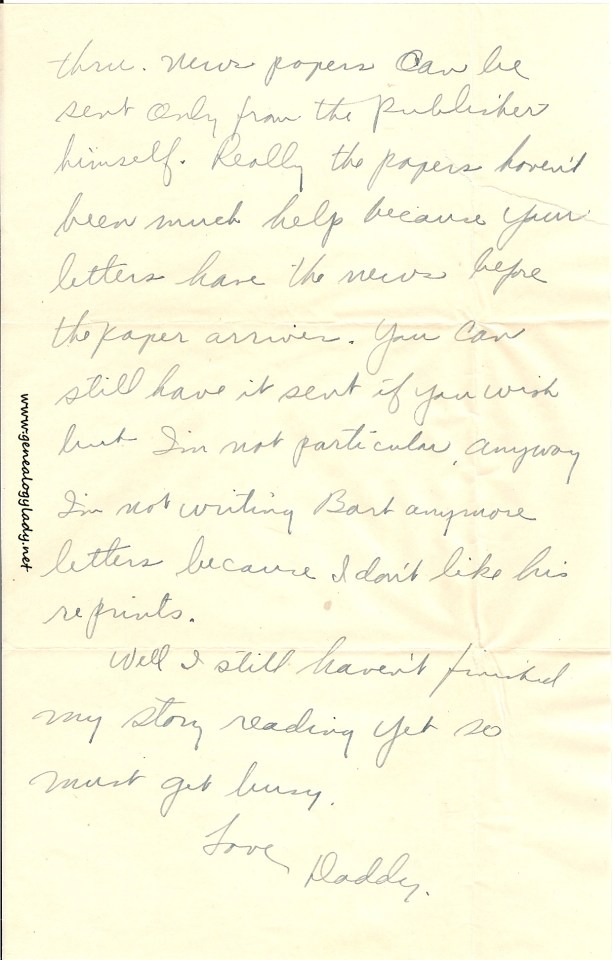 thru. News papers can be
sent only from the publisher
himself. Really the papers haven't
been much help because your
letters have the news before
the paper arrives. You can
still have it sent if you wish
but I'm not particular, anyway
I'm not writing Bart anymore
letters because I don't like his
reprints.
Well I still haven't finished
my story reading yet so
must get busy.
Love
Daddy.
www.genealogylady.net